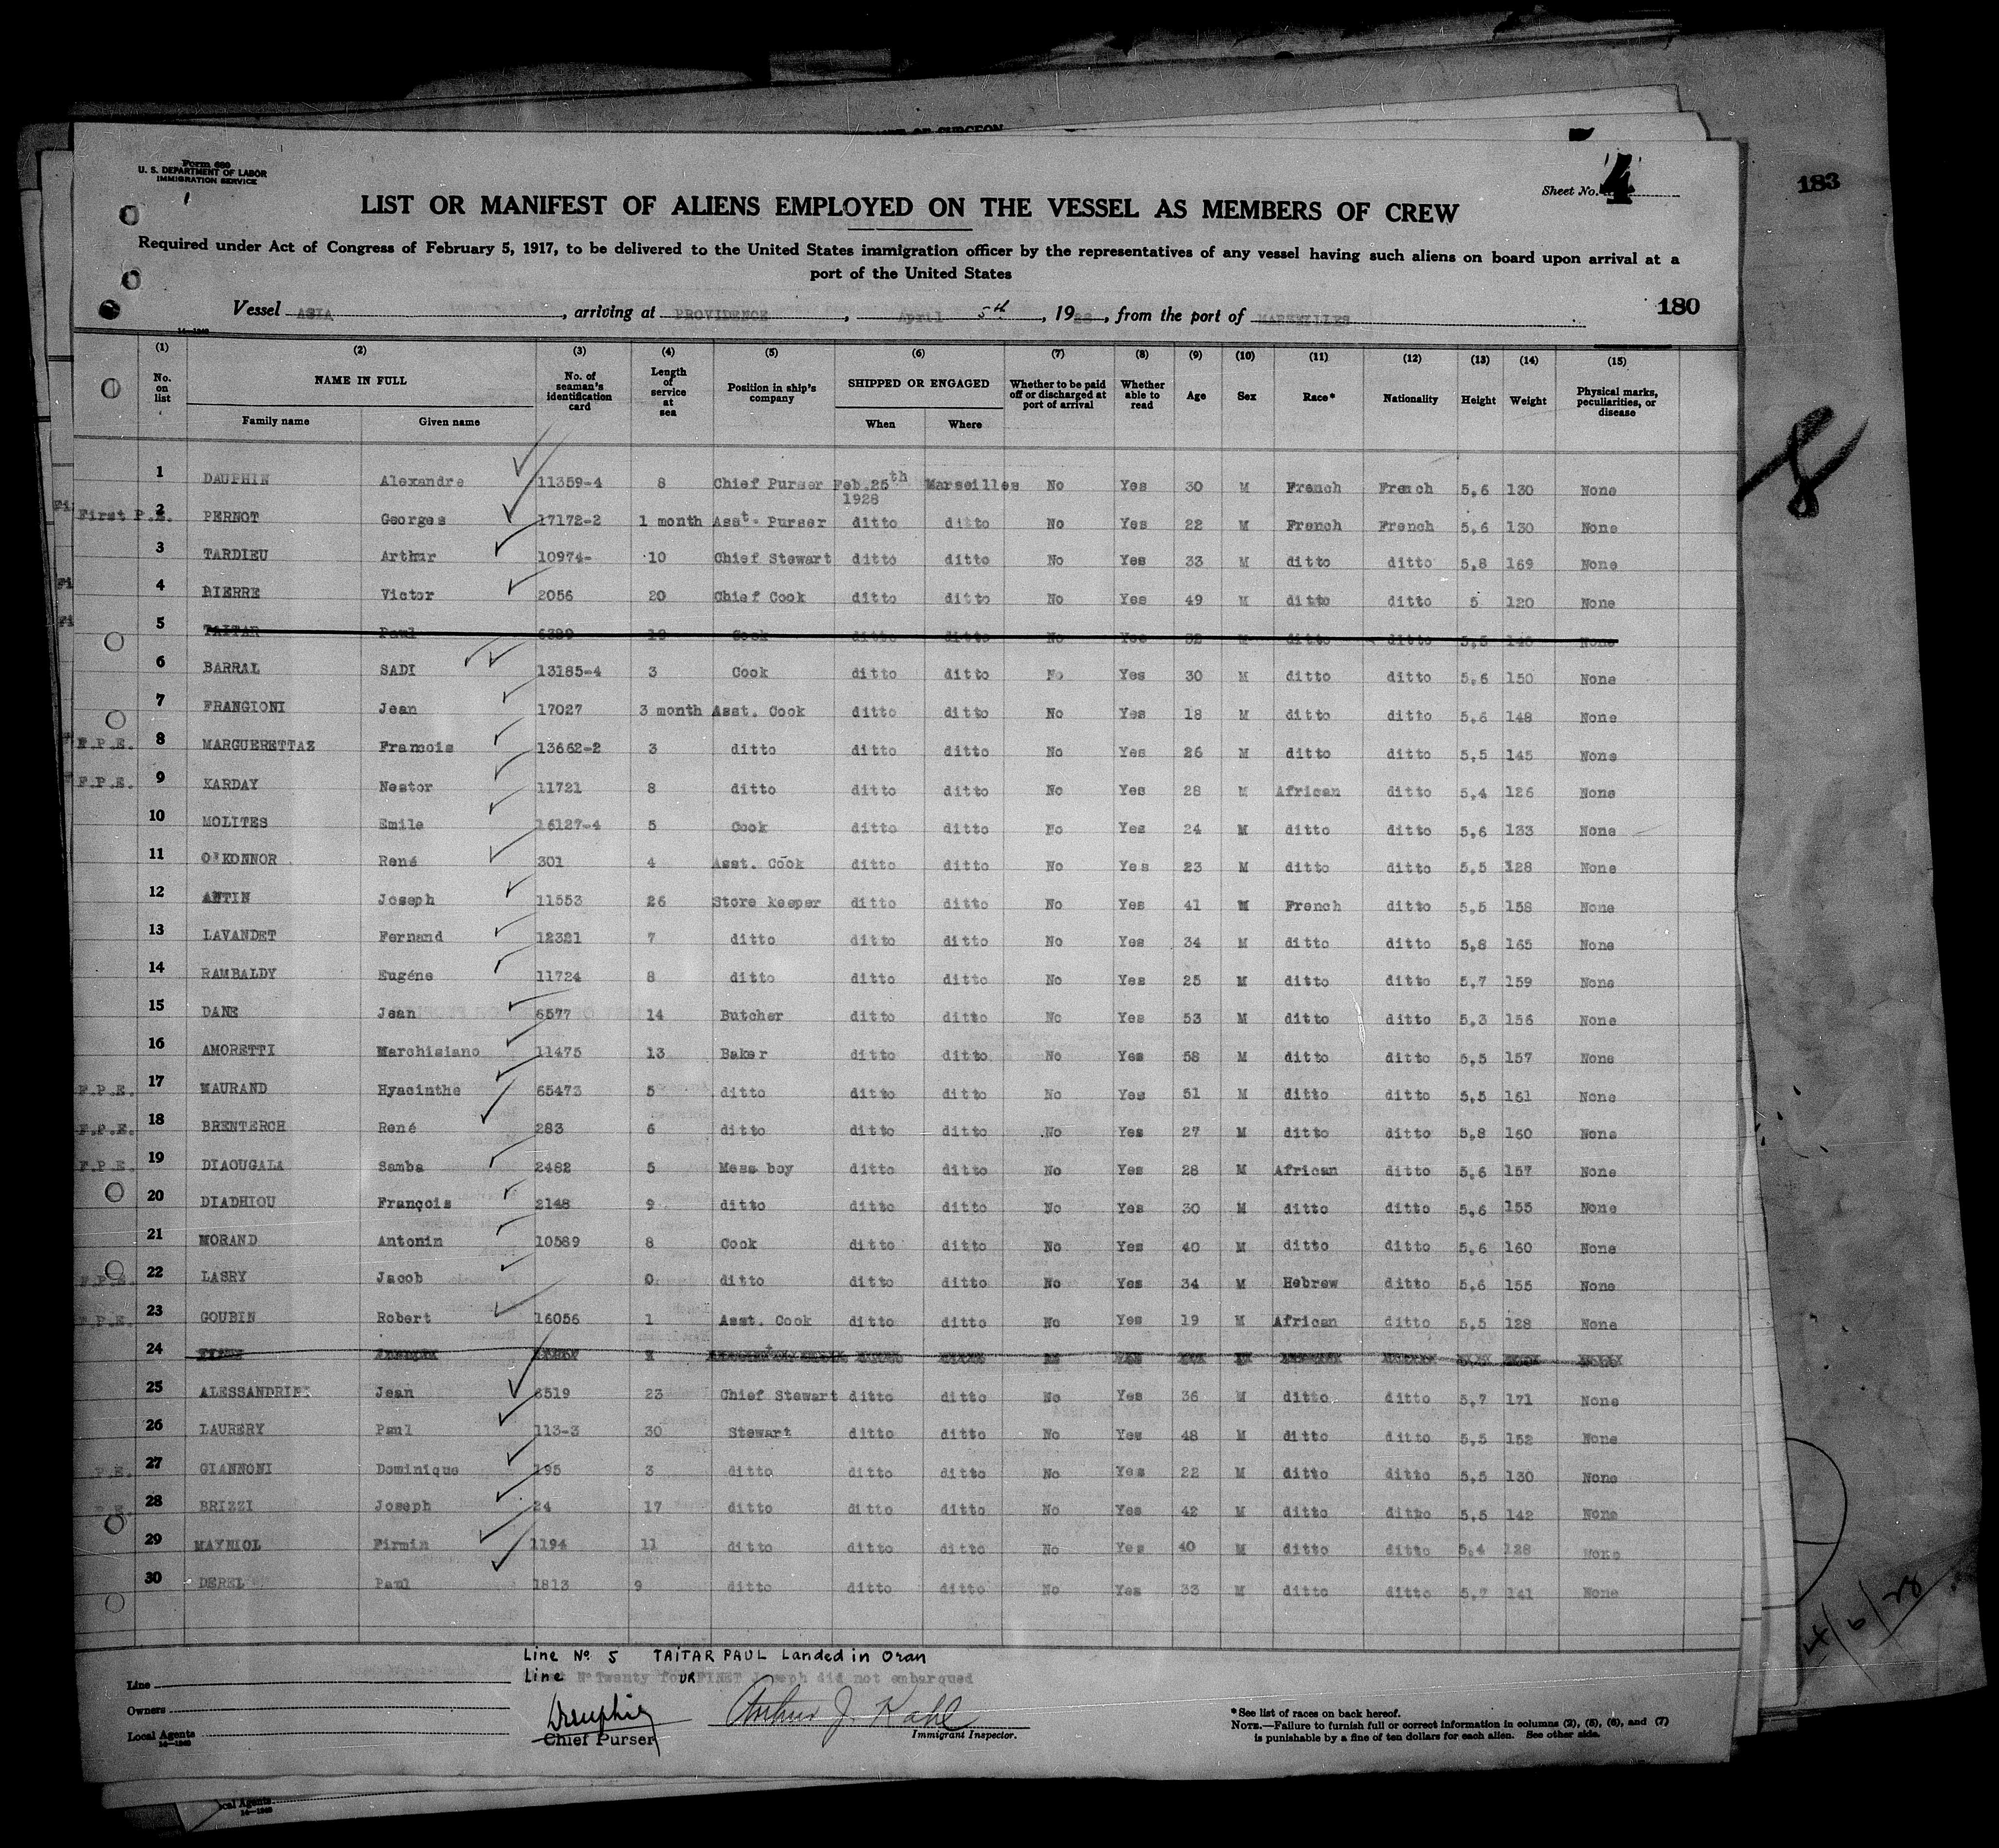 Form 689
U. S. DEPARTMENT OF LABOR
IMMIGRATION SERVICE
Sheet No. 4
183
LIST OR MANIFEST OF ALIENS EMPLOYED ON THE VESSEL AS MEMBERS OF CREW
Required under Act of Congress of February 5, 1917, to be delivered to the United States immigration officer by the representatives of any vessel having such aliens on board upon arrival at a
port of the United States
180
Vessel ASIA, arriving at PROVIDENCE, April 5th, 1928, from the port of MARSEILLES
(1) (2) (3) (4) (5) (6) (7) (8) (9) (10) (11) (12) (13) (14) (15)
No. on list NAME IN FULL Family name Given name No. of seaman's identification card Length of service at sea Position in ship's company SHIPPED OR ENGAGED When Where Whether to be paid off or discharged at port of arrival Whether able to read Age Sex Race* Nationality Height Weight Physical marks, peculiarities, or disease
1 DAUPHIN Alexandre 11359-4 8 Chief Purser Feb.25th 1928 Marseilles No Yes 30 M French French 5,6 130 None
First P.E. 2 PERNOT Georges 17172-2 1 month Asst. Purser ditto ditto No Yes 22 M French French 5,6 130 None
3 TARDIEU Arthur 10974- 10 Chief Stewart ditto ditto No Yes 33 M ditto ditto 5,8 169 None
4 BIERRE Victor 2056 20 Chief Cook ditto ditto No Yes 49 M ditto ditto 5 120 None
5 TAITAR Paul Cook ditto ditto No Yes 32 M ditto ditto 5,5 None
6 BARRAL SADI 13185-4 3 Cook ditto ditto No Yes 30 M ditto ditto 5,6 150 None
7 FRANGIONI Jean 17027 3 month Asst. Cook ditto ditto No Yes 18 M ditto ditto 5,6 148 None
F.P.E. 8 MARGUERETTAZ Framois 13662-2 3 ditto ditto ditto No Yes 26 M ditto ditto 5,5 145 None
F.P.E. 9 KARDAY Nestor 11721 8 ditto ditto ditto No Yes 28 M African ditto 5,4 126 None
10 MOLITES Emile 16127-4 5 Cook ditto ditto No Yes 24 M ditto ditto 5,6 133 None
11 O'KONNOR René 301 4 Asst. Cook ditto ditto No Yes 23 M ditto ditto 5,5 128 None
12 ANTIN Joseph 11553 26 Store keeper ditto ditto No Yes 41 M French ditto 5,5 158 None
13 LAVANDET Fernand 12321 7 ditto ditto ditto No Yes 34 M ditto ditto 5,8 165 None
14 RAMBALDY Eugéne 11724 8 ditto ditto ditto No Yes 25 M ditto ditto 5,7 159 None
15 DANE Jean 6577 14 Butcher ditto ditto No Yes 53 M ditto ditto 5,3 156 None
16 AMORETTI Marchisiano 11475 13 Baker ditto ditto No Yes 58 M ditto ditto 5,5 157 None
F.P.E. 17 MAURAND Hyacinthe 65473 5 ditto ditto ditto No Yes 51 M ditto ditto 5,5 161 None
F.P.E. 18 BRENTERCH René 283 6 ditto ditto ditto No Yes 27 M ditto ditto 5,8 160 None
F.P.E. 19 DIAOUGALA Samba 2482 5 Mess boy ditto ditto No Yes 28 M African ditto 5,6 157 None
20 DIADHIOU François 2148 9 ditto ditto ditto No Yes 30 M ditto ditto 5,6 155 None
21 MORAND Antonin 10589 8 Cook ditto ditto No Yes 40 M ditto ditto 5,6 160 None
F.P.E. 22 LASRY Jacob 0 ditto ditto ditto No Yes 34 M Hebrew ditto 5,6 155 None
F.P.E. 23 GOUBIN Robert 16056 1 Asst. Cook ditto ditto No Yes 19 M African ditto 5,5 128 None
24
25 ALESSANDRINI Jean 6519 23 Chief Stewart ditto ditto No Yes 36 M ditto ditto 5,7 171 None
26 LAURERY Paul 113-3 30 Stewart ditto ditto No Yes 48 M ditto ditto 5,5 152 None
P.E. 27 GIANNONI Dominique 195 3 ditto ditto ditto No Yes 22 M ditto ditto 5,5 130 None
28 BRIZZI Joseph 24 17 ditto ditto ditto No Yes 42 M ditto ditto 5,5 142 None
29 MAYNIOL Firmin 1194 11 ditto ditto ditto No Yes 40 M ditto ditto 5,4 128 None
30 DEREL Paul 1813 9 ditto ditto ditto No Yes 33 M ditto ditto 5,7 141 None
Line No. 5 TAITAR PAUL Landed in Oran
Line No Twenty four FINET Joseph did not embarqued
Line
Owners
Local Agents
14—1949
Dauphin
Chief Purser
Arthur J. Kahl
Immigrant Inspector.
*See list of races on back hereof.
NOTE.—Failure to furnish full or correct information in columns (2), (5), (6), and (7)
is punishable by a fine of ten dollars for each alien. See other side.
8
4/6/28